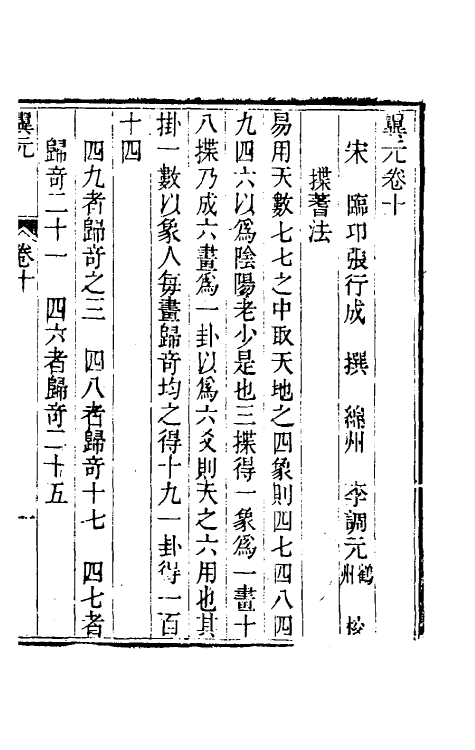 翼元卷十
宋　臨卭張行成　撰　綿州　李調元鶴州　校
揲蓍法
易用天數七七之中取天地之四象則四七四八四
九四六以爲陰陽老少是也三揲得一象爲一畫十
八揲乃成六畫爲一卦以爲六爻則天之六用也其
掛一數以象人每畫歸奇均之得十九一卦得一百
十四
四九者歸奇之三　四八者歸奇十七　四七者
歸奇二十一　四六者歸奇二十五
翼元　卷十　一